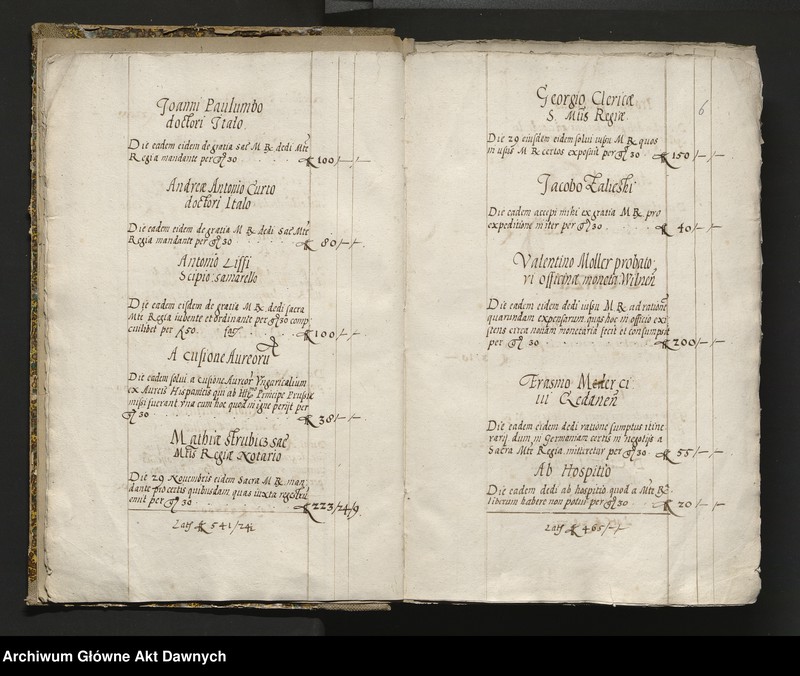 Joanni Paulumbo
doctori Italo
Die eadem eidem de gratia sac M R dedi Mte
Regia mandante per gr 30 100/-/-
Andreæ Antonio Curto
doctori Italo
Die eadem eidem de gratia M R dedi sac Mte
Regia mandante per gr 30 80/-/-
Antonio Liffi
Scipio: samarello
Die eadem eisdem de gratia M R dedi sacra
Mte Regia iubente et ordinante per gr 30 comp
cuilibet per 50. fac 100/-/-
A cusione Aureorū
Die eadem solui a cusione Aureor Vngaricalium
ex Aureis Hispanicis qui ab Principe Prussiæ
missi fuerant vna cum hoc quod in igne perijt per
gr 30 38/-/-
Mathiæ strubicz sac
Mtis Regiæ Notario
Die 29 Nouembris eidem Sacra M R man
dante pro certis quibusdam quas iuxta regestrū
emit per gr 30 223/24/9
Lats 541/24
6
Georgio Clericæ
S Mtis Regiæ
Die 29 eiusdem eidem solui iussu M R quos
in usus M R certos exposuit per gr 30 150/-/-
Jacobo Zalieski
Die eadem accepi mihi ex gratia M R pro
expeditione in iter per gr 30 40/-/-
Valentino Moller probato
ri officinæ moneta Wilnen
Die eadem eidem dedi iussu M R ad ratione
quarundam expensarum quas hoc in officio exi
stens circa nouam monetariā fecit et consumpsit
per gr 30 200/-/-
Erasmo Meder ci
ui Gedanen
Die eadem eidem dedi ratione sumptus itine
rarij dum in Germaniam certis in negotijs a
Sacra Mte Regia mitteretur per gr 30 55/-/-
Ab Hospitio
Die eadem dedi ab hospitio quod a Mte R
liberum habere non potui per gr 30 20/-/-
Lats 465/-/-
Archiwum Główne Akt Dawnych